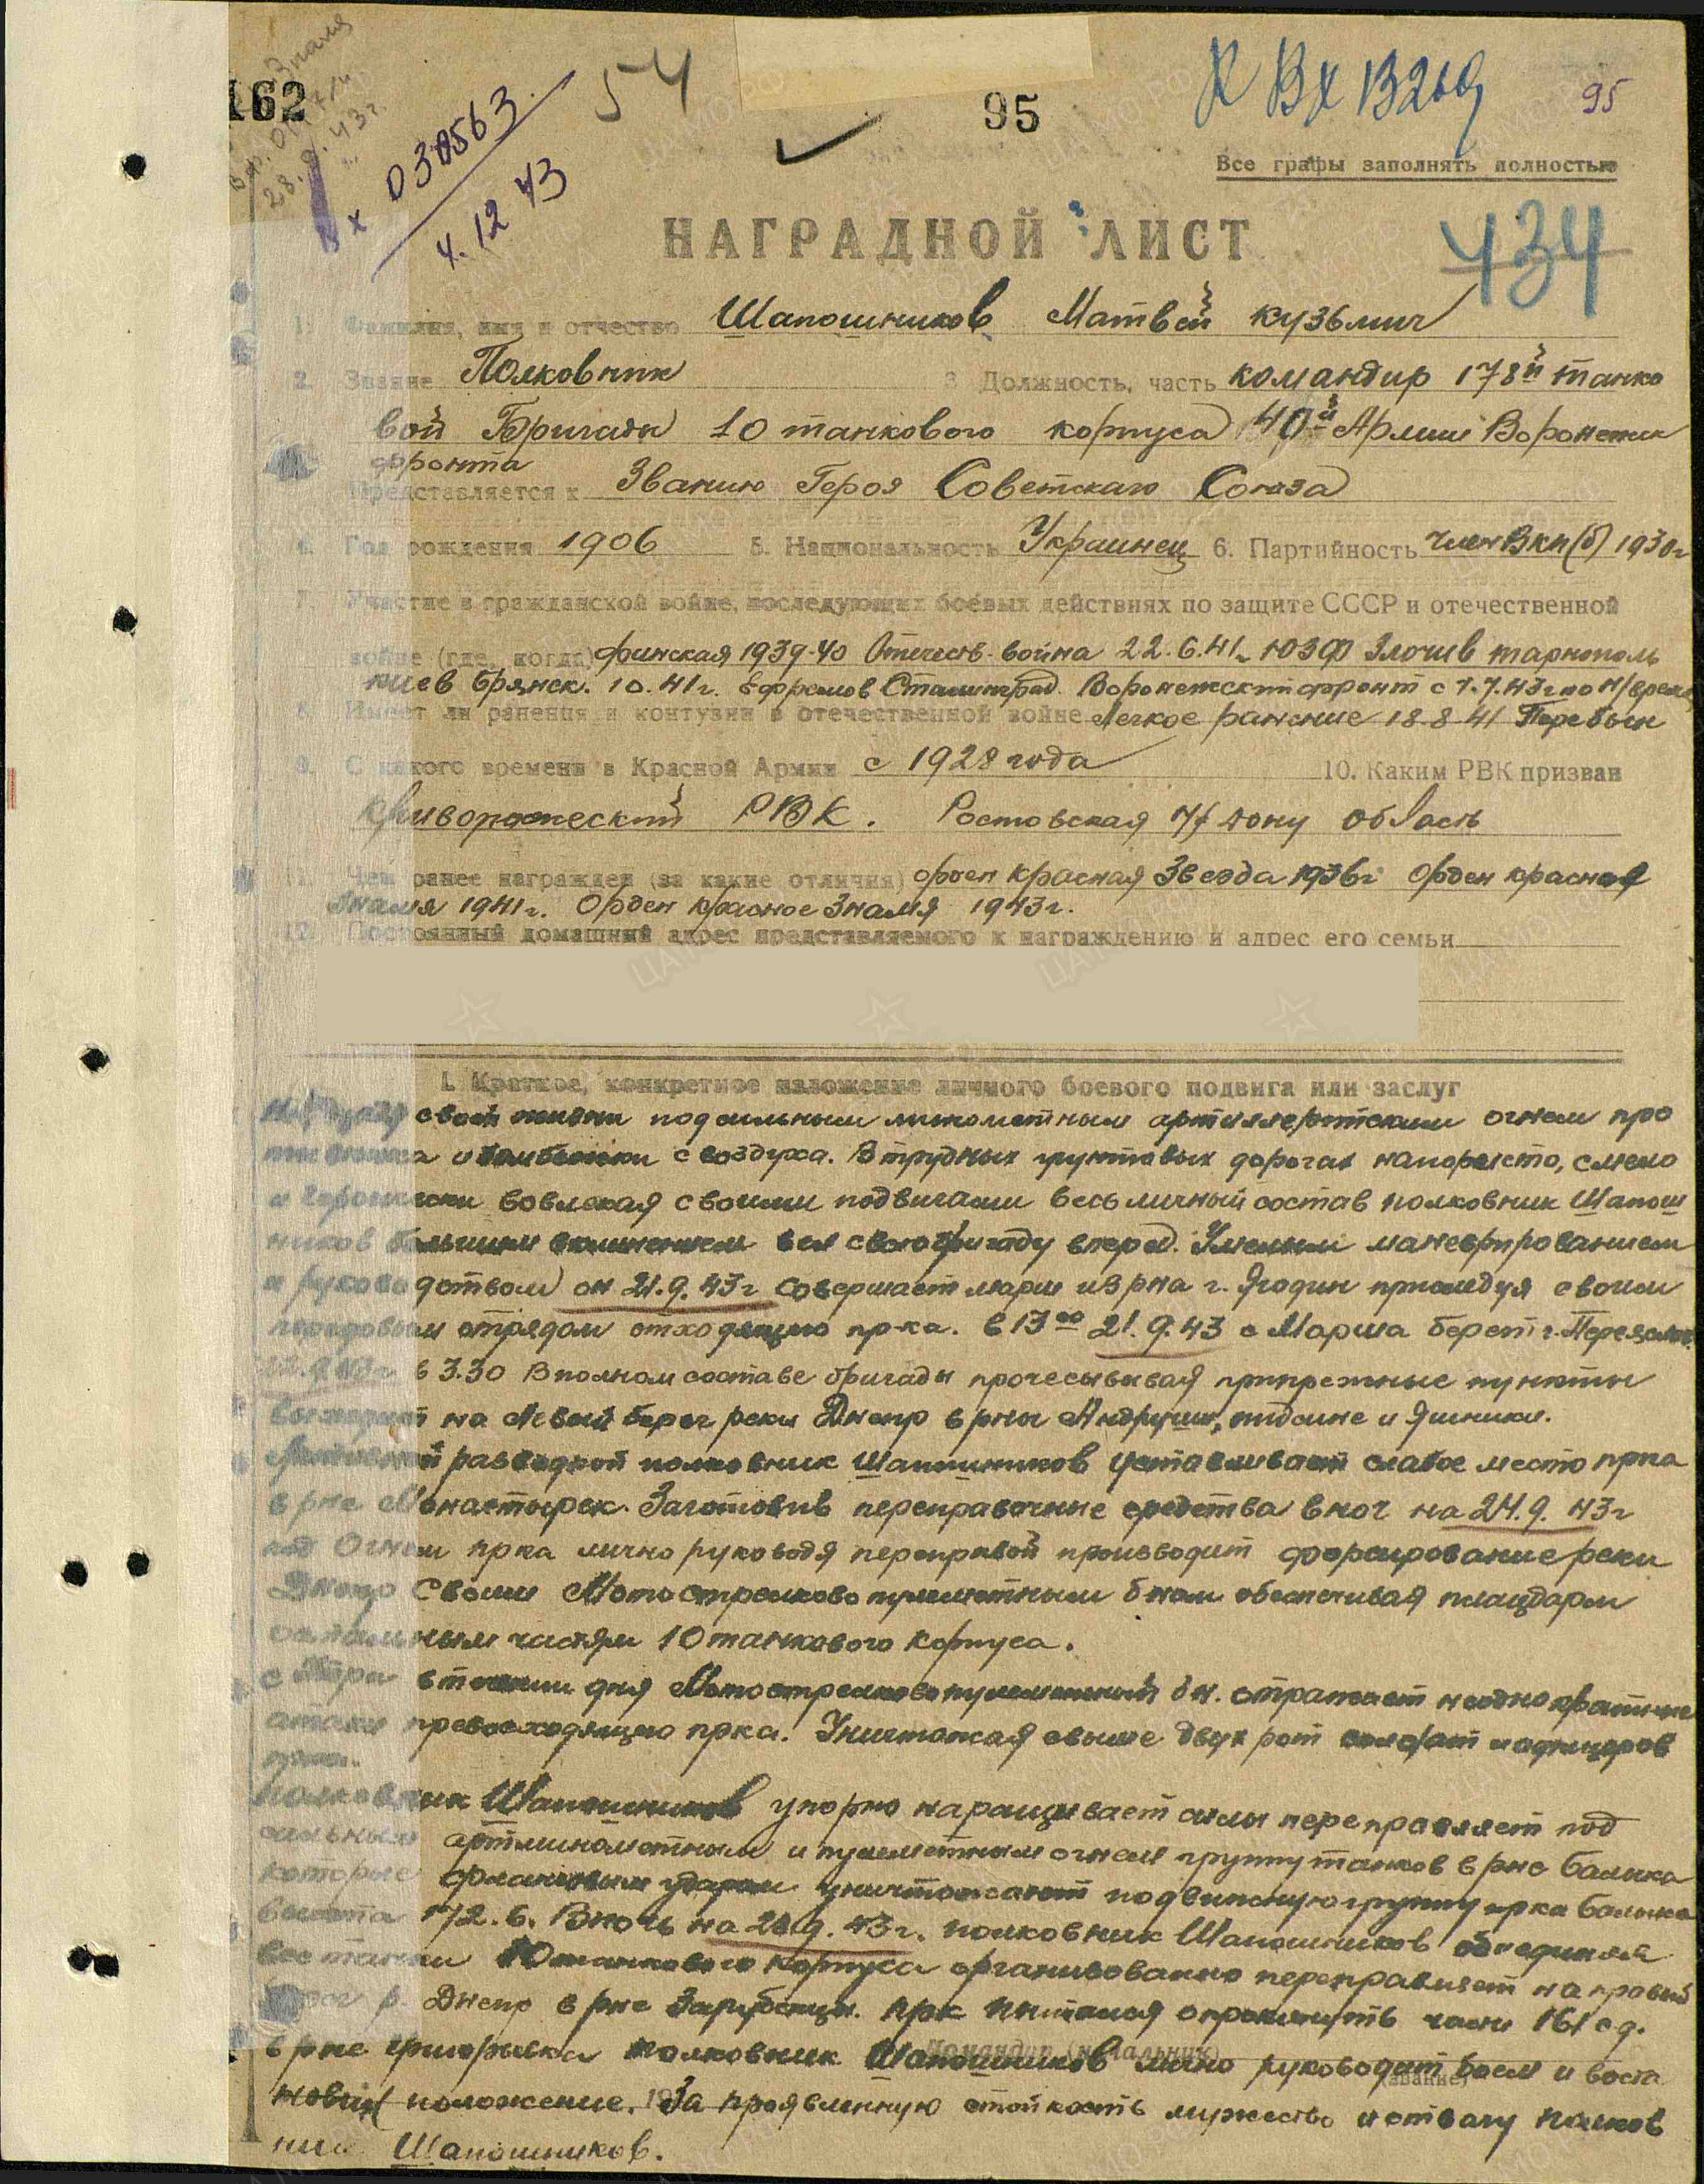 162
54
95
К Вх 13269
95
Вх 030563
4.12 43
28.9.43 г.
Все графы заполнять полностью
434
НАГРАДНОЙ ЛИСТ
1. Фамилия, имя и отчество Шапошников Матвей Кузьмич
2. Звание Полковник 3 Должность, часть командир 178й танко
вой Бригады 10 танкового корпуса 40й Армии Воронежск
фронта
Представляется к Званию Героя Советского Союза
4. Год рождения 1906 5. Национальность Украинец 6. Партийность член ВКП(б) 1930 г
7. Участие в гражданской войне, последующих боевых действиях по защите СССР и отечественной
войне (где, когда) финская 1939-40 Отечеств. война 22.6.41 г ЮЗФ Злочив тарнополь
киев брянск. 10.41 г. Ефремов Сталинград. Воронежский фронт с 7.7.43 г по н/время
8. Имеет ли ранения и контузии в отечественной войне Легкое ранение 18.8 41
9. С какого времени в Красной Армии с 1928 года 10. Каким РВК призван
РВК. Ростовская н/дону область
11. Чем ранее награжден (за какие отличия) орден красная Звезда 1936 г орден красная
знамя 1941 г. Орден красное Знамя 1943 г.
12. Постоянный домашний адрес представляемого к награждению и адрес его семьи
1. Краткое, конкретное изложение личного боевого подвига или заслуг
своей жизни под сильным минометным артиллерийским огнем про
тивника и бомбежки с воздуха. В трудных грунтовых дорогах напористо, смело
и геройски вовлекая своими подвигами весь личный состав полковник Шапош
ников большим вел свою бригаду вперед. Умелым маневрированием
и руководством он 21.9.43 г совершает марш из рна г. Ягодин преследуя своим
передовым отрядом отходящего пр-ка. в 13 00 21.9.43 с Марша берет г. Переяслав.
22.9.43 г в 3.30 В полном составе бригады прочесывывая прибрежные пункты
выходит на Левый берег реки Днепр в рны Андруши, подсине и Яшники.
разведкой полковник Шапошников уставливает слабое место прка
в рне Монастырек. Заготовив переправочные средства в ноч на 24.9.43 г
под Огнем прка лично руководя переправой производит форсирование реки
Днепр Своим Мотострелково пулеметным бном обеспечивая плацдарм
остальным частям 10 танкового корпуса.
с Утра в течении дня Мотострелково пулеметный бн. отражает неоднократные
атаки превосходящего прка. Уничтожая свыше двух рот солдат и офицеров
прка.
полковник Шапошников упорно наращивает силы переправляет под
сильным артминометным и пулеметным огнем группу танков в рне балыка
которые фланговым ударом уничтожают подвижную группу прка балыка
высота 172.6. В ночь на 28.9.43 г. полковник Шапошников объединяя
все танки 10 танкового корпуса организованно переправляет на правый
берег р. Днепр в рне Зарубенцы. Прк пытался опрокинуть части 161 сд.
в рне григорьевка полковник Шапошников лично руководит боем и воста
Командир (начальник)
(звание)
новил положение. За проявленную стойкость мужество и отвагу полков
ник Шапошников.